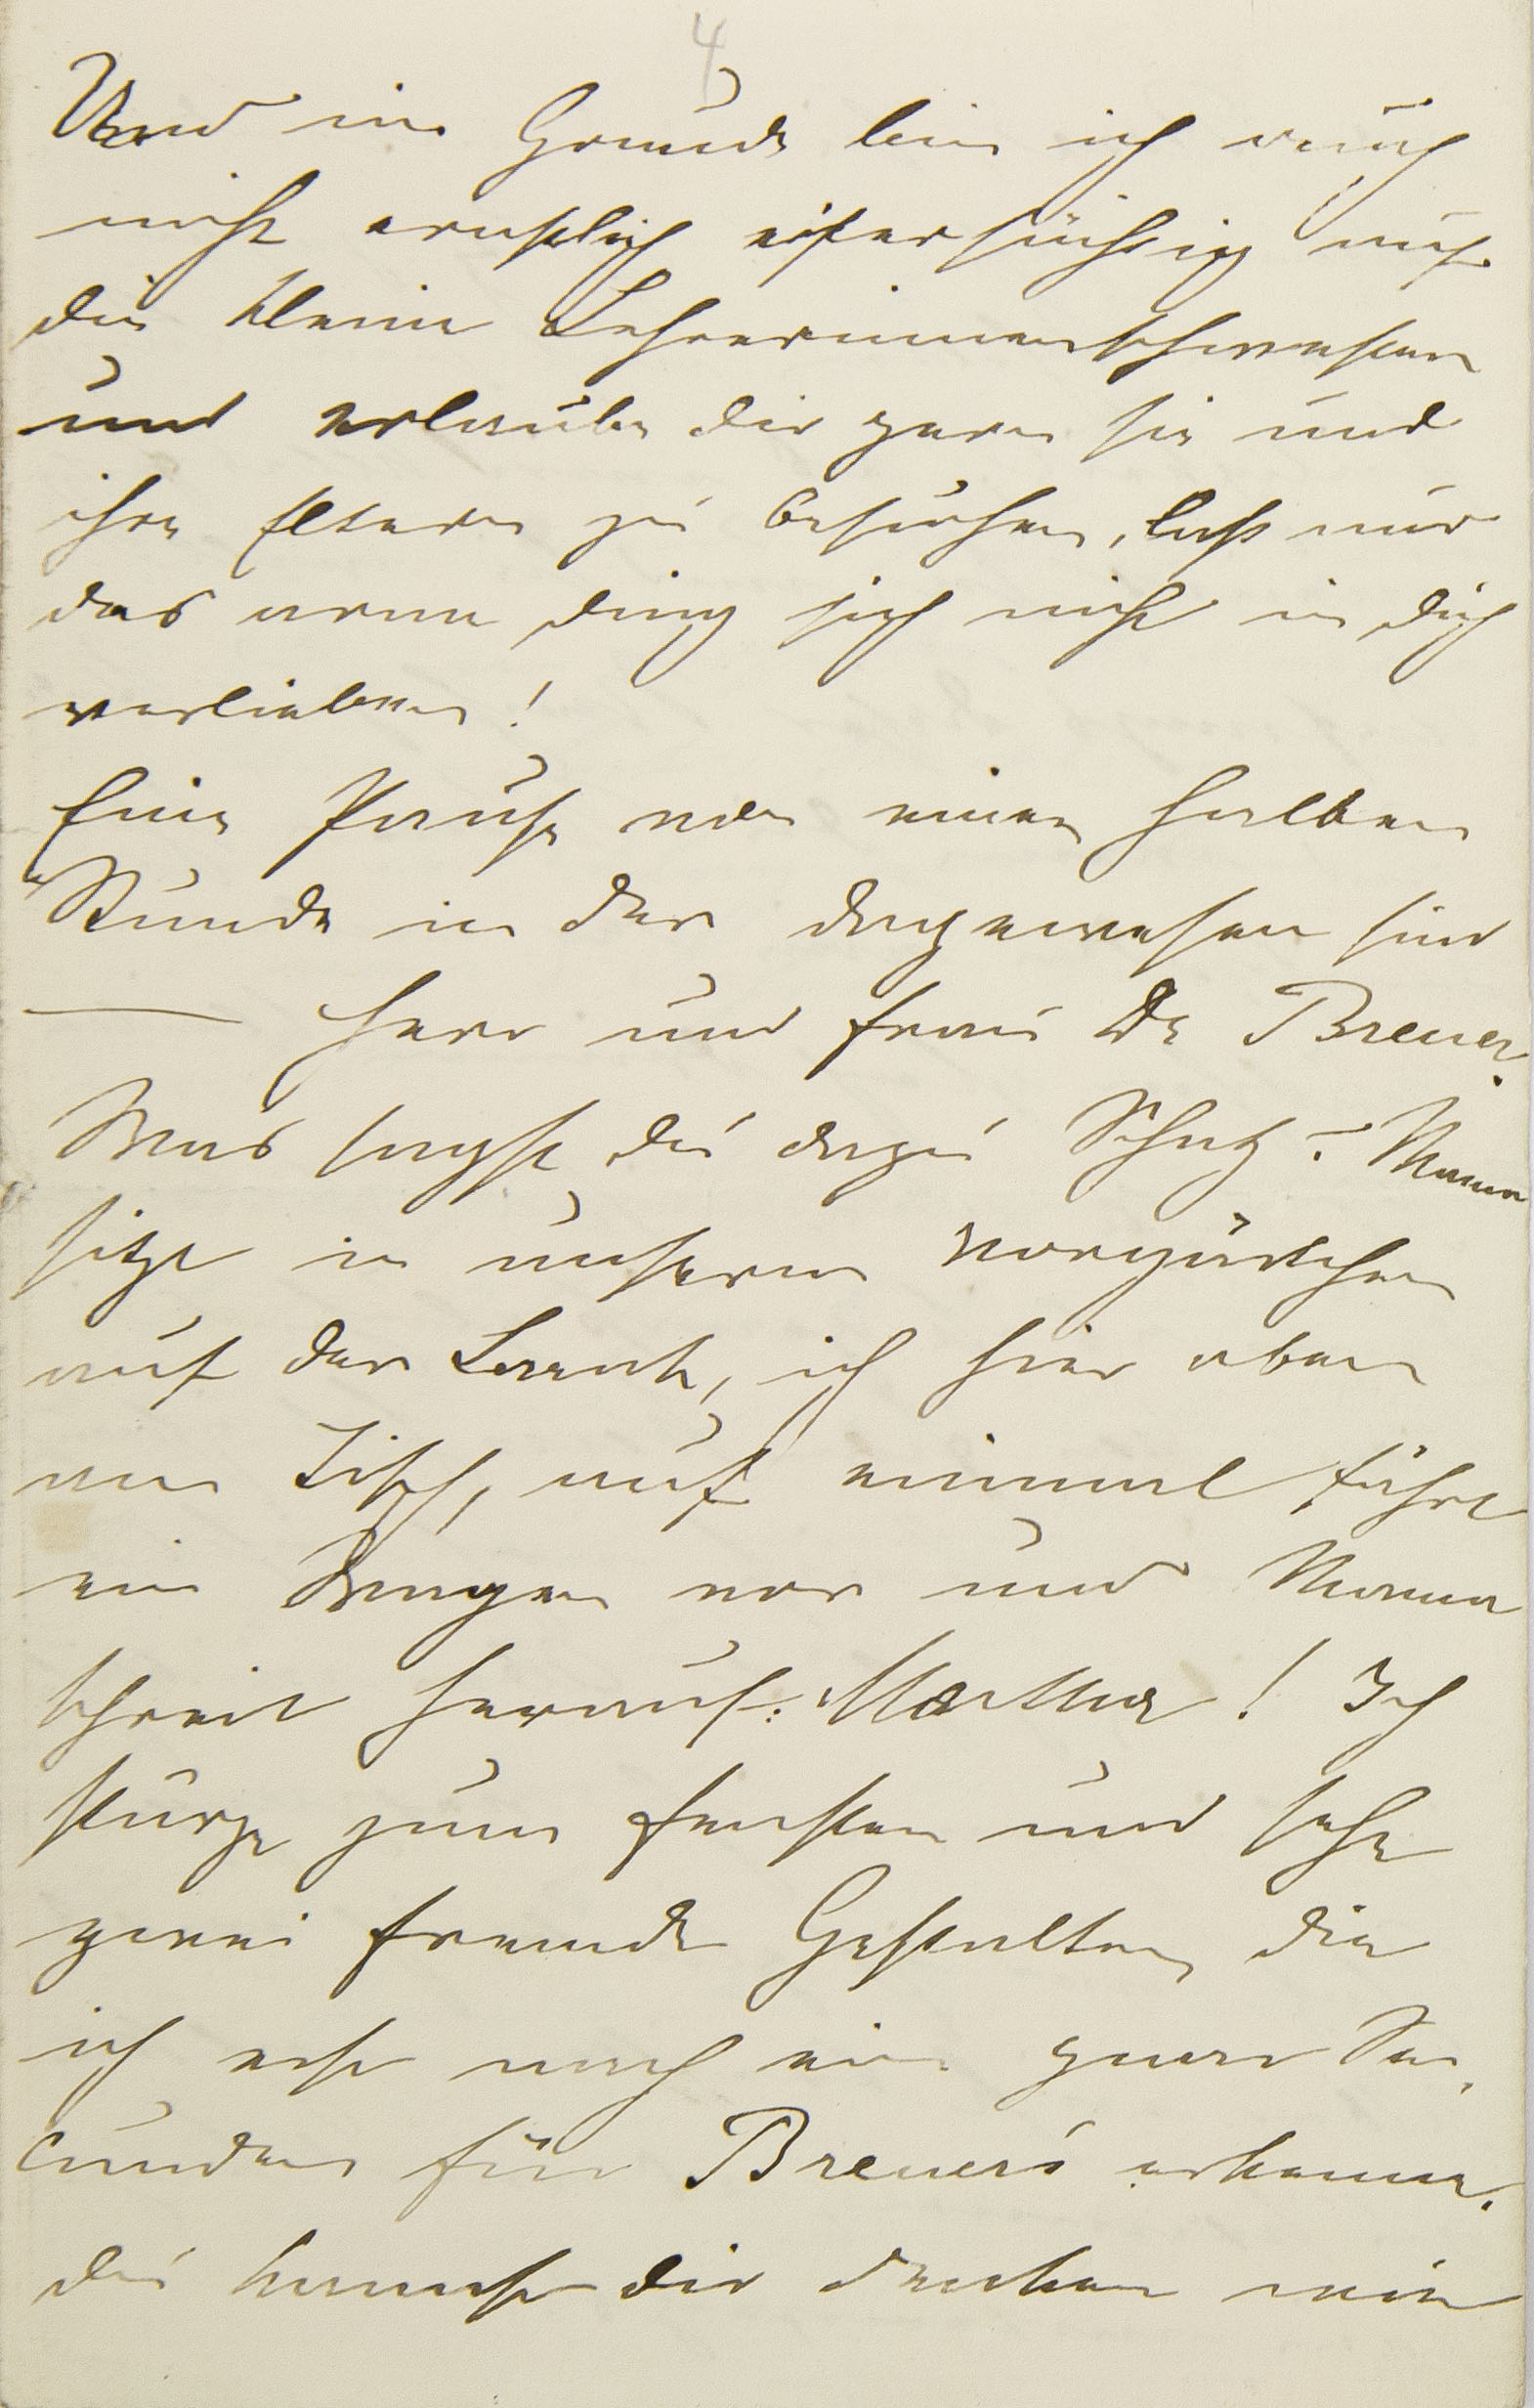 4
Und im Grunde bin ich auch
nicht ernstlich eifersüchtig auf
die kleine Lehrerinnenschwester
und erlaube dir gern sie und
ihre Eltern zu besuchen, laß nur
das arme Ding sich nicht in dich
verlieben!
Eine Pause von einer halben
Stunde in der dagewesen sind
— Herr und Frau Dr Breuer.
Was sagst du dazu Schatz? – Mama
sitzt in unserem Vorgärtchen
auf der Bank, ich hier oben
am Tisch, auf einmal fährt
ein Wagen vor und Mama
schreit herauf: Martha! Ich
stürze zum Fenster und sehe
zwei fremde Gestalten die
ich erst nach ein paar Se-
cunden für Breuers erkenne.
Du kannst dir denken wie